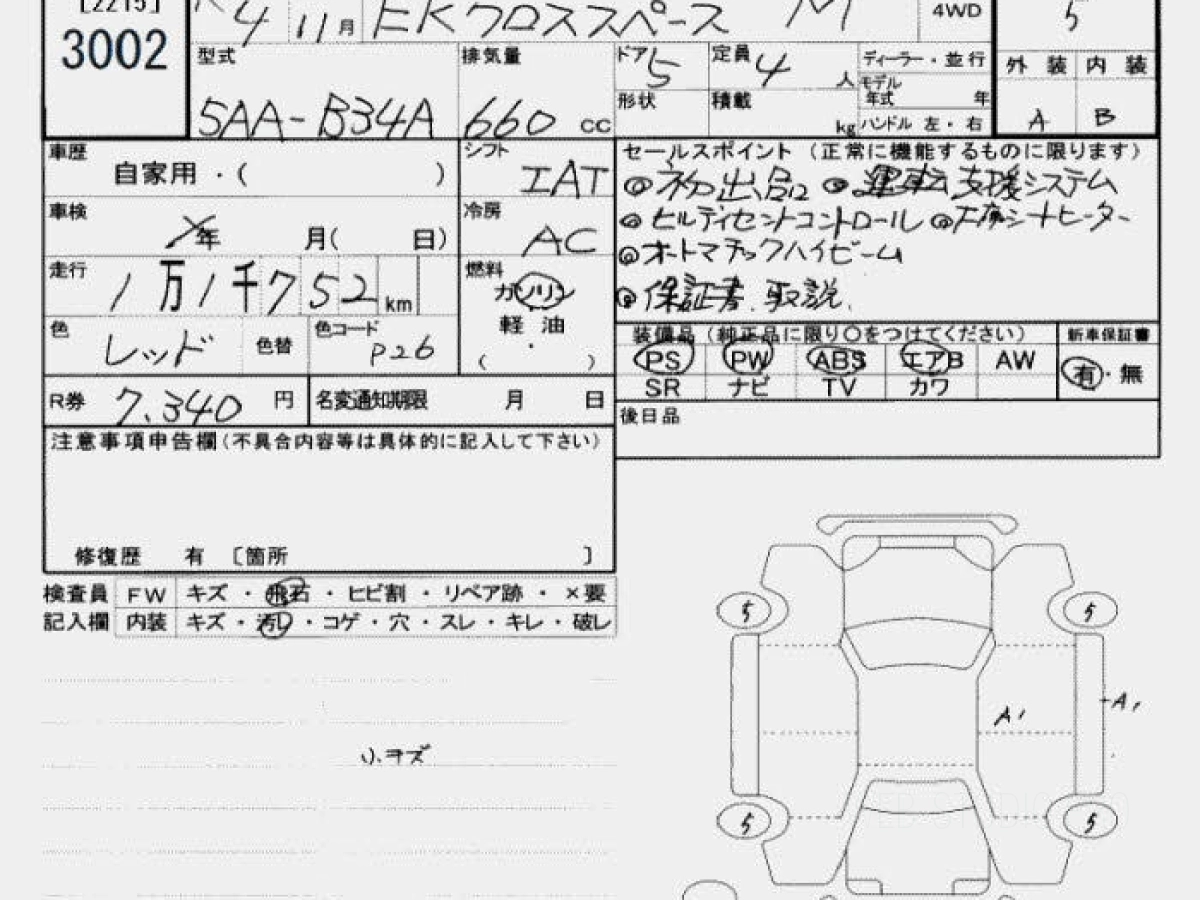 [2215]
3002
R 4 11月 EKクロススペース M 4WD 5
型式 5AA-B34A
排気量 660 cc
ドア 5 定員 4 人
形状 積載 kg
ディーラー・並行
モデル年式 年
ハンドル 左・右
外装 内装
A B
車歴 自家用・( )
シフト IAT
車検 ×年 月( 日)
冷房 AC
走行 1万1千752 km
燃料 ガソリン
軽油
( ・ )
色 レッド 色替 色コード P26
R券 7,340 円 名変通知期限 月 日
セールスポイント (正常に機能するものに限ります)
◎初出品 ◎運転支援システム
◎ヒルディセントコントロール ◎左席シートヒーター
◎オートマチックハイビーム
◎保証書.取説.
装備品 (純正品に限り○をつけてください) 新車保証書
PS PW ABS エアB AW 有・無
SR ナビ TV カワ
後日品
注意事項申告欄(不具合内容等は具体的に記入して下さい)
修復歴 有 〔箇所 〕
検査員 FW キズ・飛石・ヒビ割・リペア跡・×要
記入欄 内装 キズ・汚レ・コゲ・穴・スレ・キレ・破レ
小.キズ
5 5
A1 A1
5 5